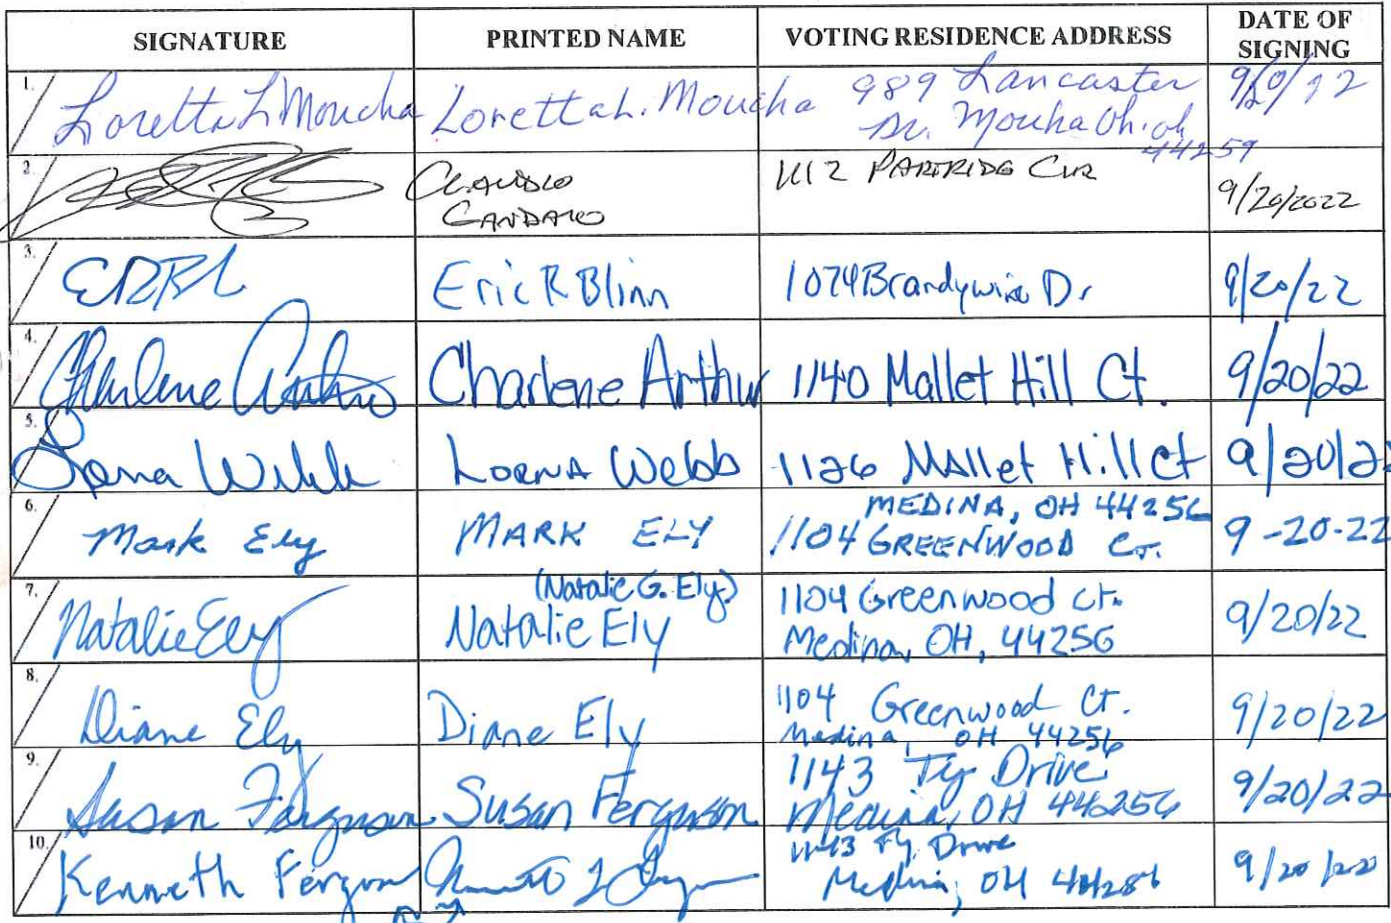 SIGNATURE PRINTED NAME VOTING RESIDENCE ADDRESS DATE OF SIGNING
1. Loretta L Moucha Loretta L. Moucha 989 Lancaster
Dr. 44259
2. CLAUDIO PARTRIDG CIR 9/20/2022
3. Eric R Blinn 1074 Brandywine Dr 9/20/22
4. Charlene Arthur Charlene Arthur 1140 Mallet Hill Ct. 9/20/22
5. Lorna Webb LORNA Webb 1126 Mallet Hill Ct 9/20/22
6. Mark Ely MARK ELY 1104 GREENWOOD CT. 9-20-22
MEDINA, OH 44256
7. Natalie Ely (Natalie G. Ely)
Natalie Ely 1104 Greenwood ct.
Medina, OH, 44256 9/20/22
8. Diane Ely Diane Ely 1104 Greenwood Ct.
Medina, OH 44256 9/20/22
9. Susan Ferguson Susan Ferguson 1143 Ty Drive
Medina, OH 44256 9/20/22
10. Kenneth Ferguson 1143 Ty Drive
Medina, OH 9/20/22